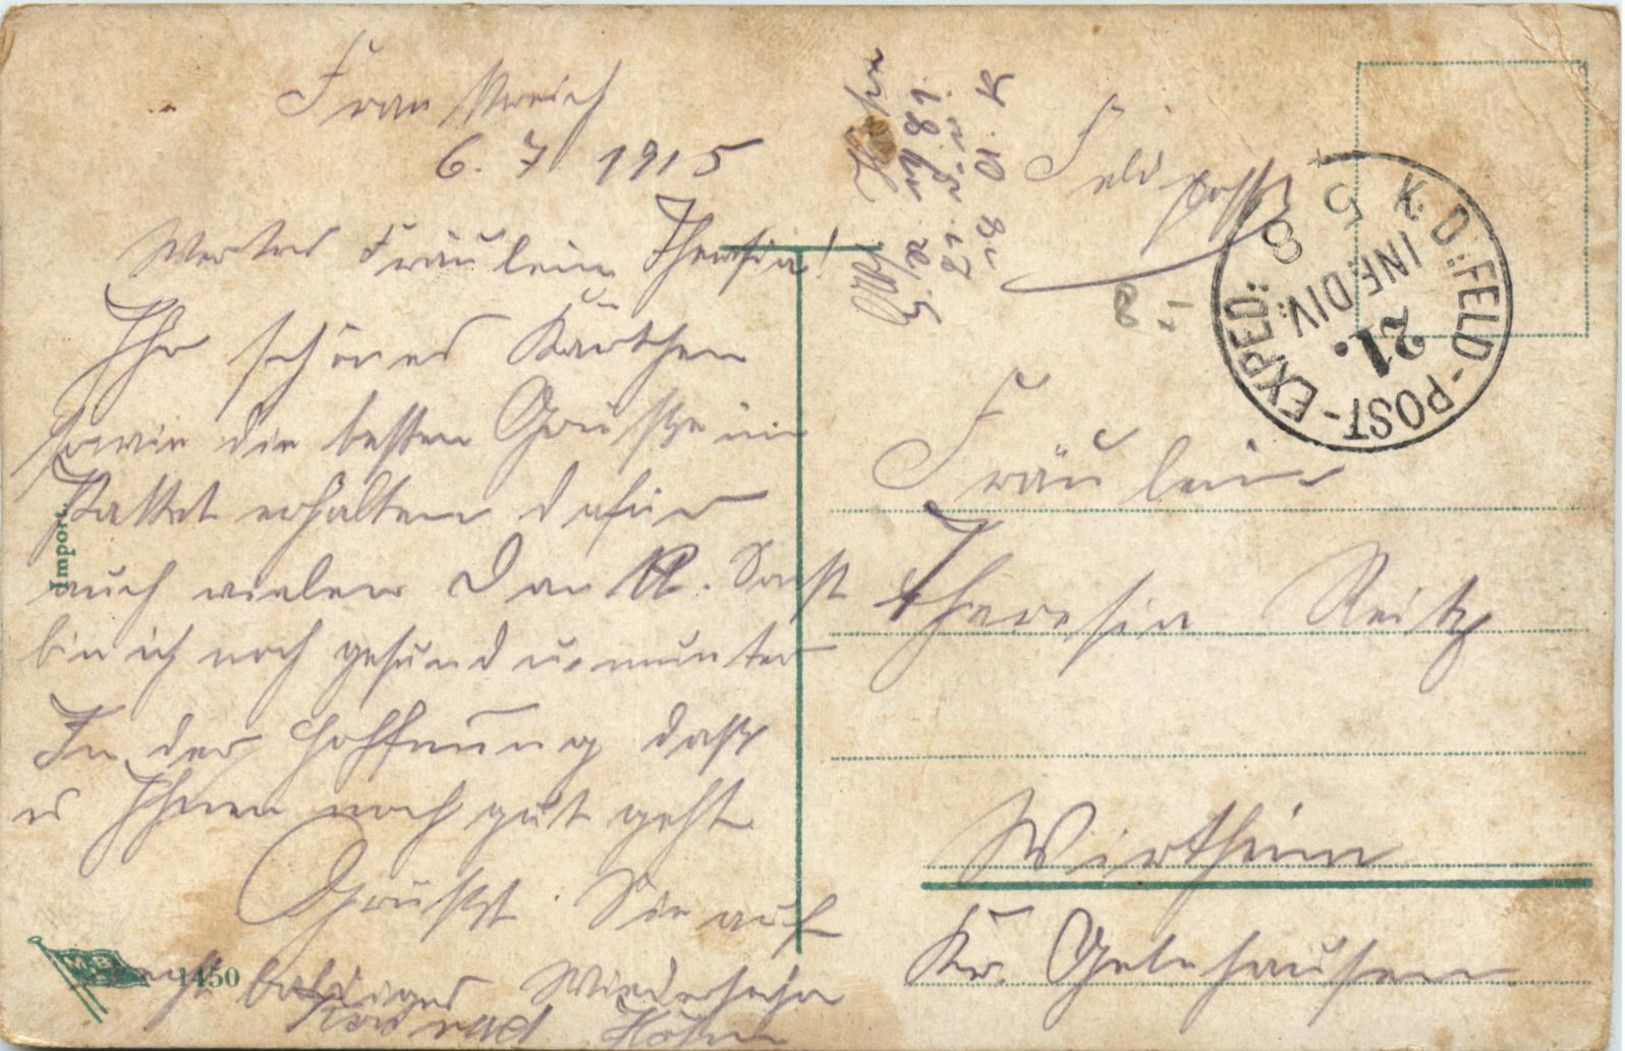 Frankreich
6. 7 1915
Wertes Fräulein Theresia!
Ihr schönes Kärtchen
sowie die besten Grüße im
Packet erhalten dafür
auch vielen Dank. Sonst
bin ich noch gesund u. munter
In der Hoffnung dass
es Ihnen noch gut geht
Grüßt Sie auf
recht baldiges Wiedersehn
Konrad
Import.
M&B
1450
Feldpost
K. D. FELD-POST-EXPED:
21.
INF. DIV.
8 5
Fräulein
Theresia Reitz
Wirtheim
Kr. Gelnhausen